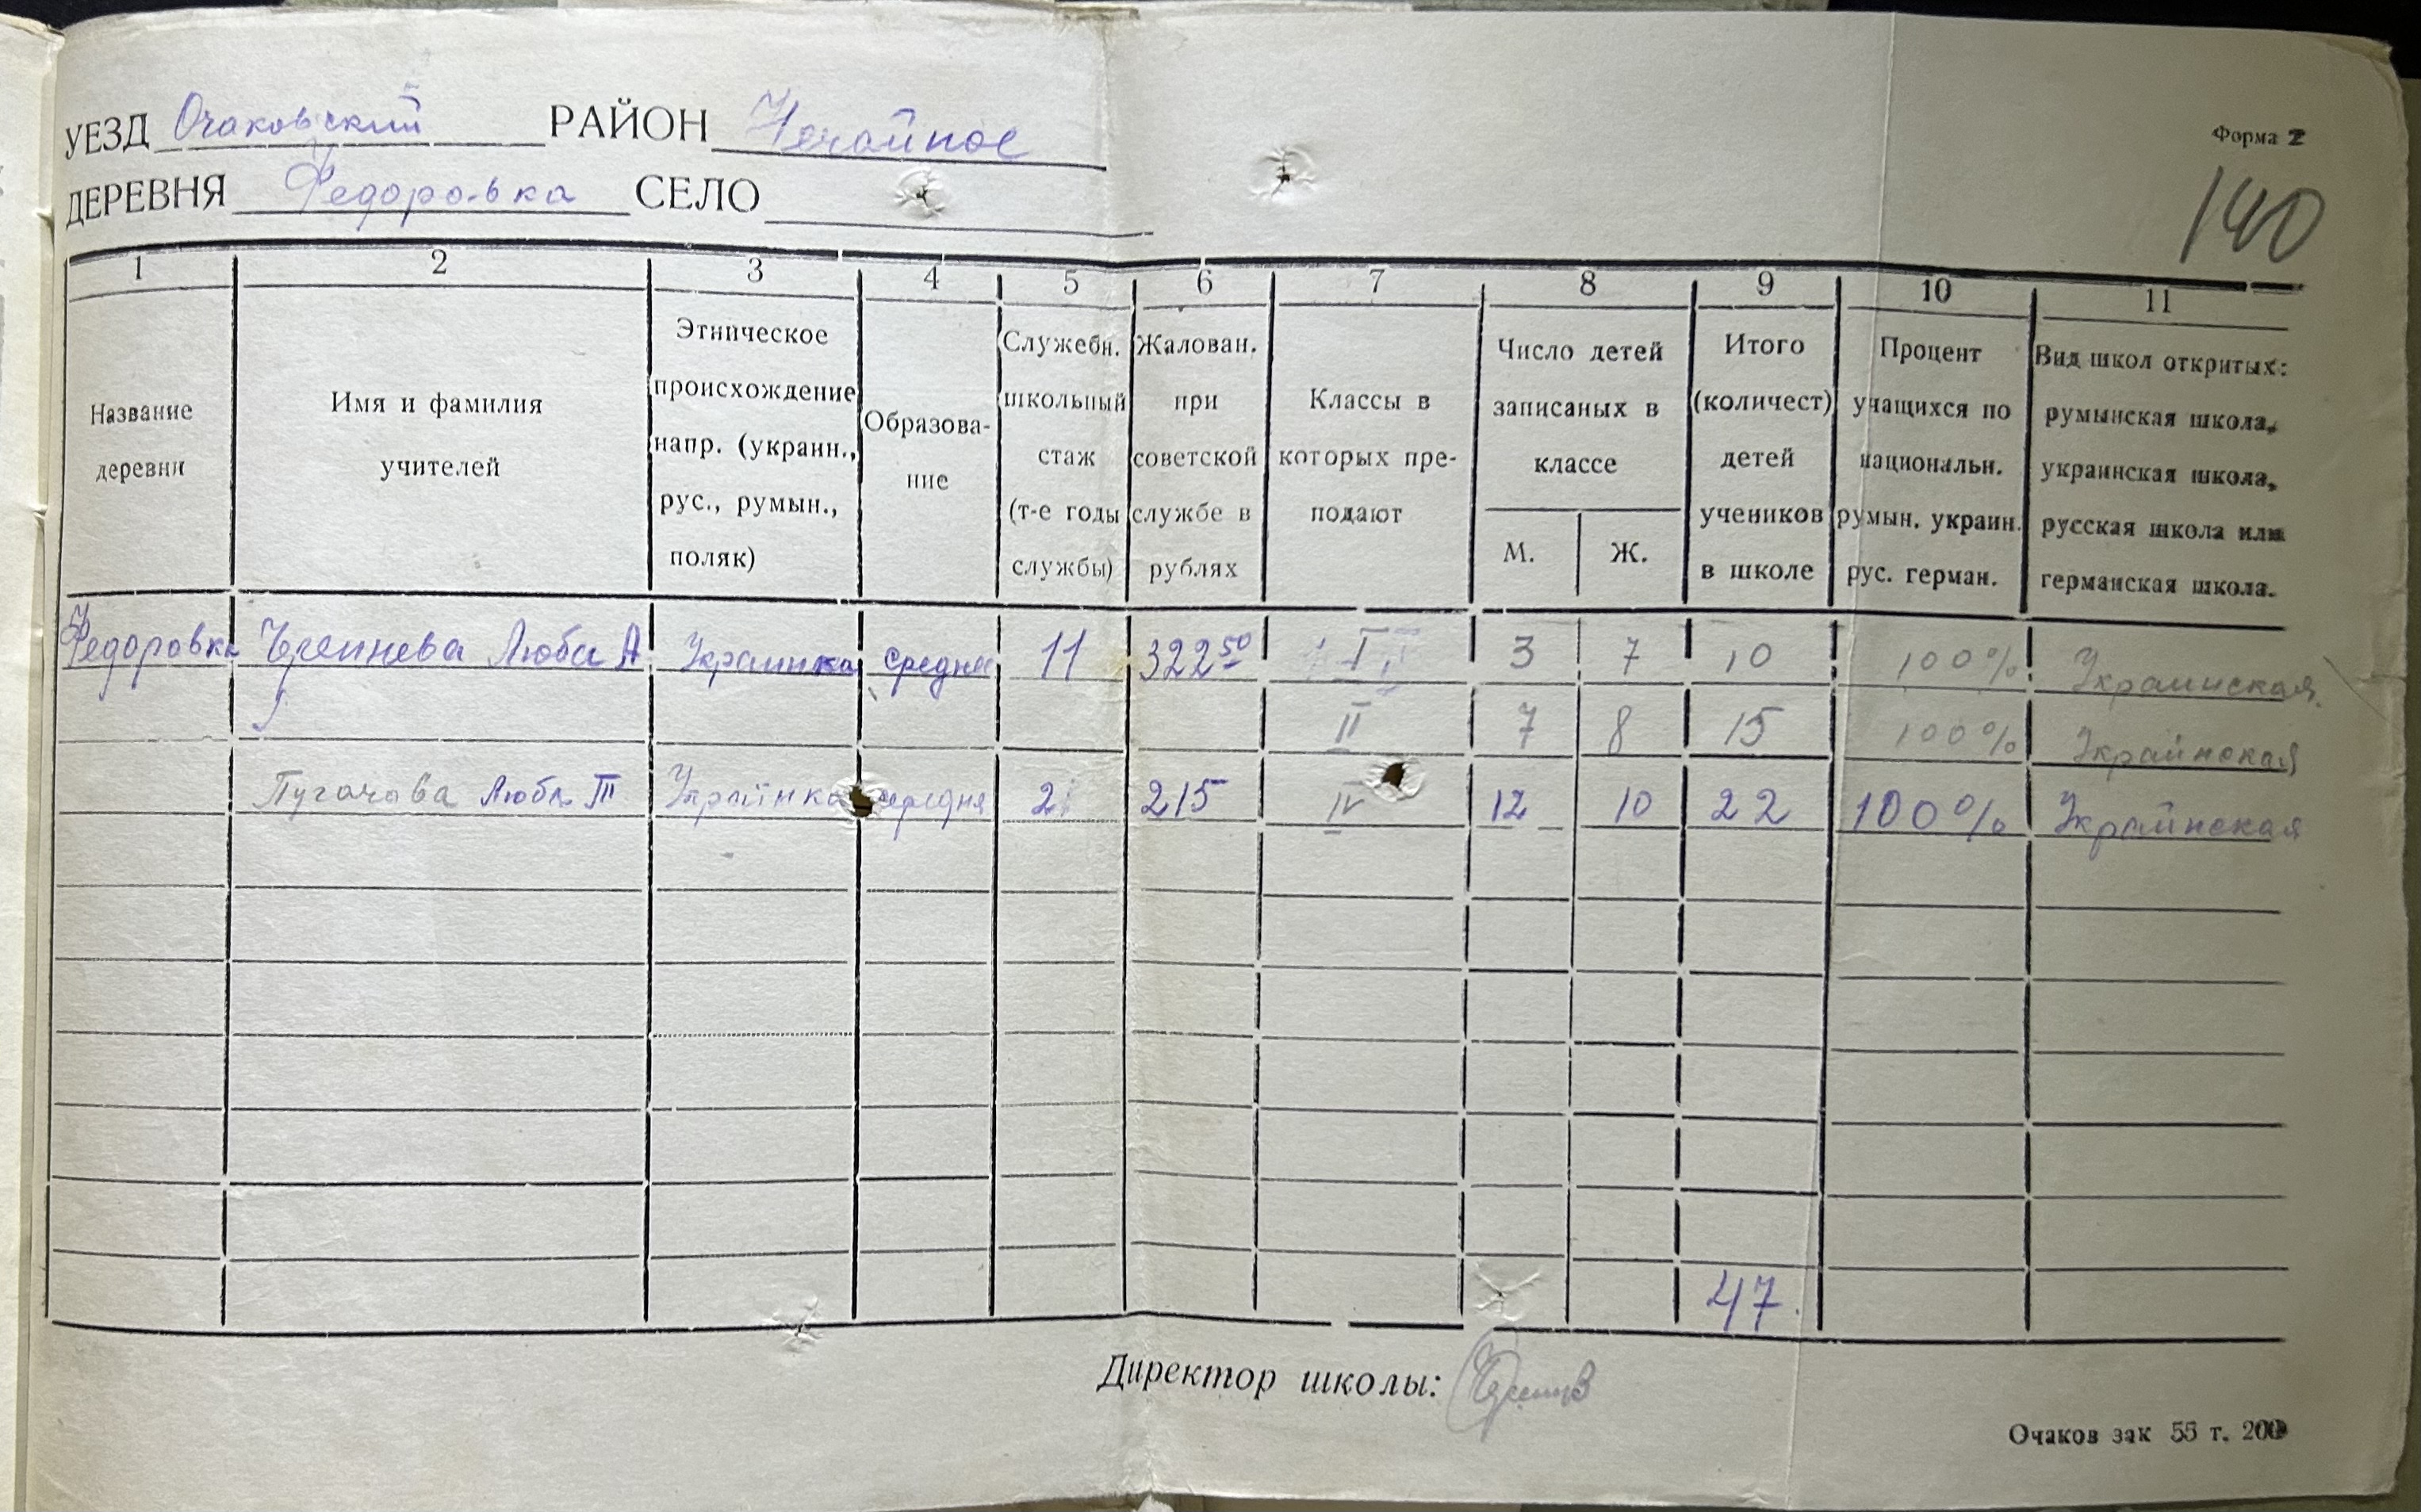 УЕЗД Очаковский РАЙОН Нечайное
Форма 2
ДЕРЕВНЯ Федоровка СЕЛО
140
1 2 3 4 5 6 7 8 9 10 11
Название деревни
Имя и фамилия учителей
Этническое происхождение напр. (украин., рус., румын., поляк)
Образова-ние
Служебн. школьный стаж (т-е годы службы)
Жалован. при советской службе в рублях
Классы в которых пре-подают
Число детей записаных в классе
М. Ж.
Итого (количест) детей учеников в школе
Процент учащихся по национальн. румын. украин. рус. герман.
Вид школ открытых: румынская школа, украинская школа, русская школа или германская школа.
Федоровка Люба А Украинка средне 11 322 50 I 3 7 10 100% Украинская
II 7 8 15 100% Украінская
Пугачова Люба III Українка середня 2 215 IV 12 10 22 100% Украінская
47.
Директор школы:
Очаков зак 55 т. 200